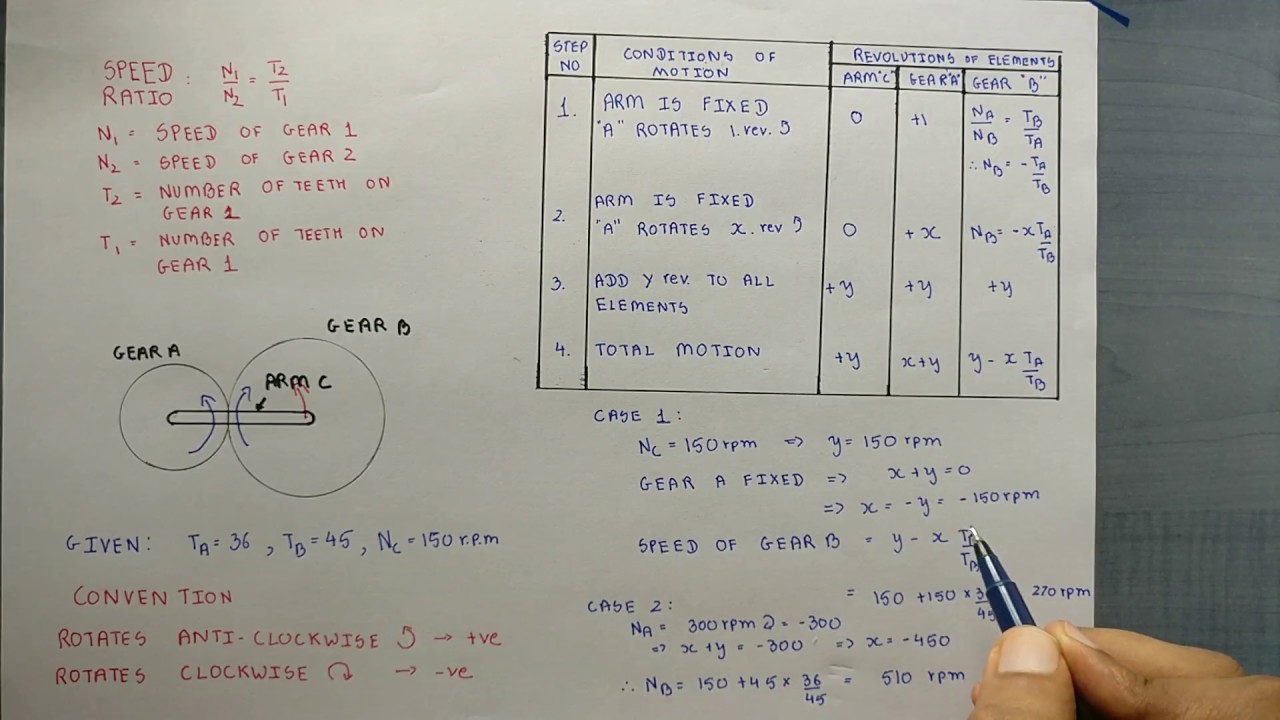 SPEED RATIO : N₁/N₂ = T₂/T₁
N₁ = SPEED OF GEAR 1
N₂ = SPEED OF GEAR 2
T₂ = NUMBER OF TEETH ON
GEAR 1
T₁ = NUMBER OF TEETH ON
GEAR 1
GEAR B
GEAR A
ARM C
GIVEN: T_A = 36 , T_B = 45 , N_C = 150 r.p.m
CONVENTION
ROTATES ANTI-CLOCKWISE ↺ → +ve
ROTATES CLOCKWISE ↻ → -ve
STEP NO
CONDITIONS OF MOTION
REVOLUTIONS OF ELEMENTS
ARM "C" GEAR "A" GEAR "B"
1. ARM IS FIXED
"A" ROTATES 1.rev. ↺ 0 +1 N_A/N_B = T_B/T_A
∴ N_B = -T_A/T_B
2. ARM IS FIXED
"A" ROTATES x.rev ↺ 0 +x N_B = -x T_A/T_B
3. ADD Y rev. TO ALL
ELEMENTS +y +y +y
4. TOTAL MOTION +y x+y y - x T_A/T_B
CASE 1:
N_C = 150 rpm => y = 150 rpm
GEAR A FIXED => x + y = 0
=> x = -y = -150 rpm
SPEED OF GEAR B = y - x T_A/T_B
= 150 + 150 × 45 270 rpm
CASE 2:
N_A = 300 rpm ↻ = -300
=> x + y = -300 => x = -450
∴ N_B = 150 + 45 × 36/45 = 510 rpm